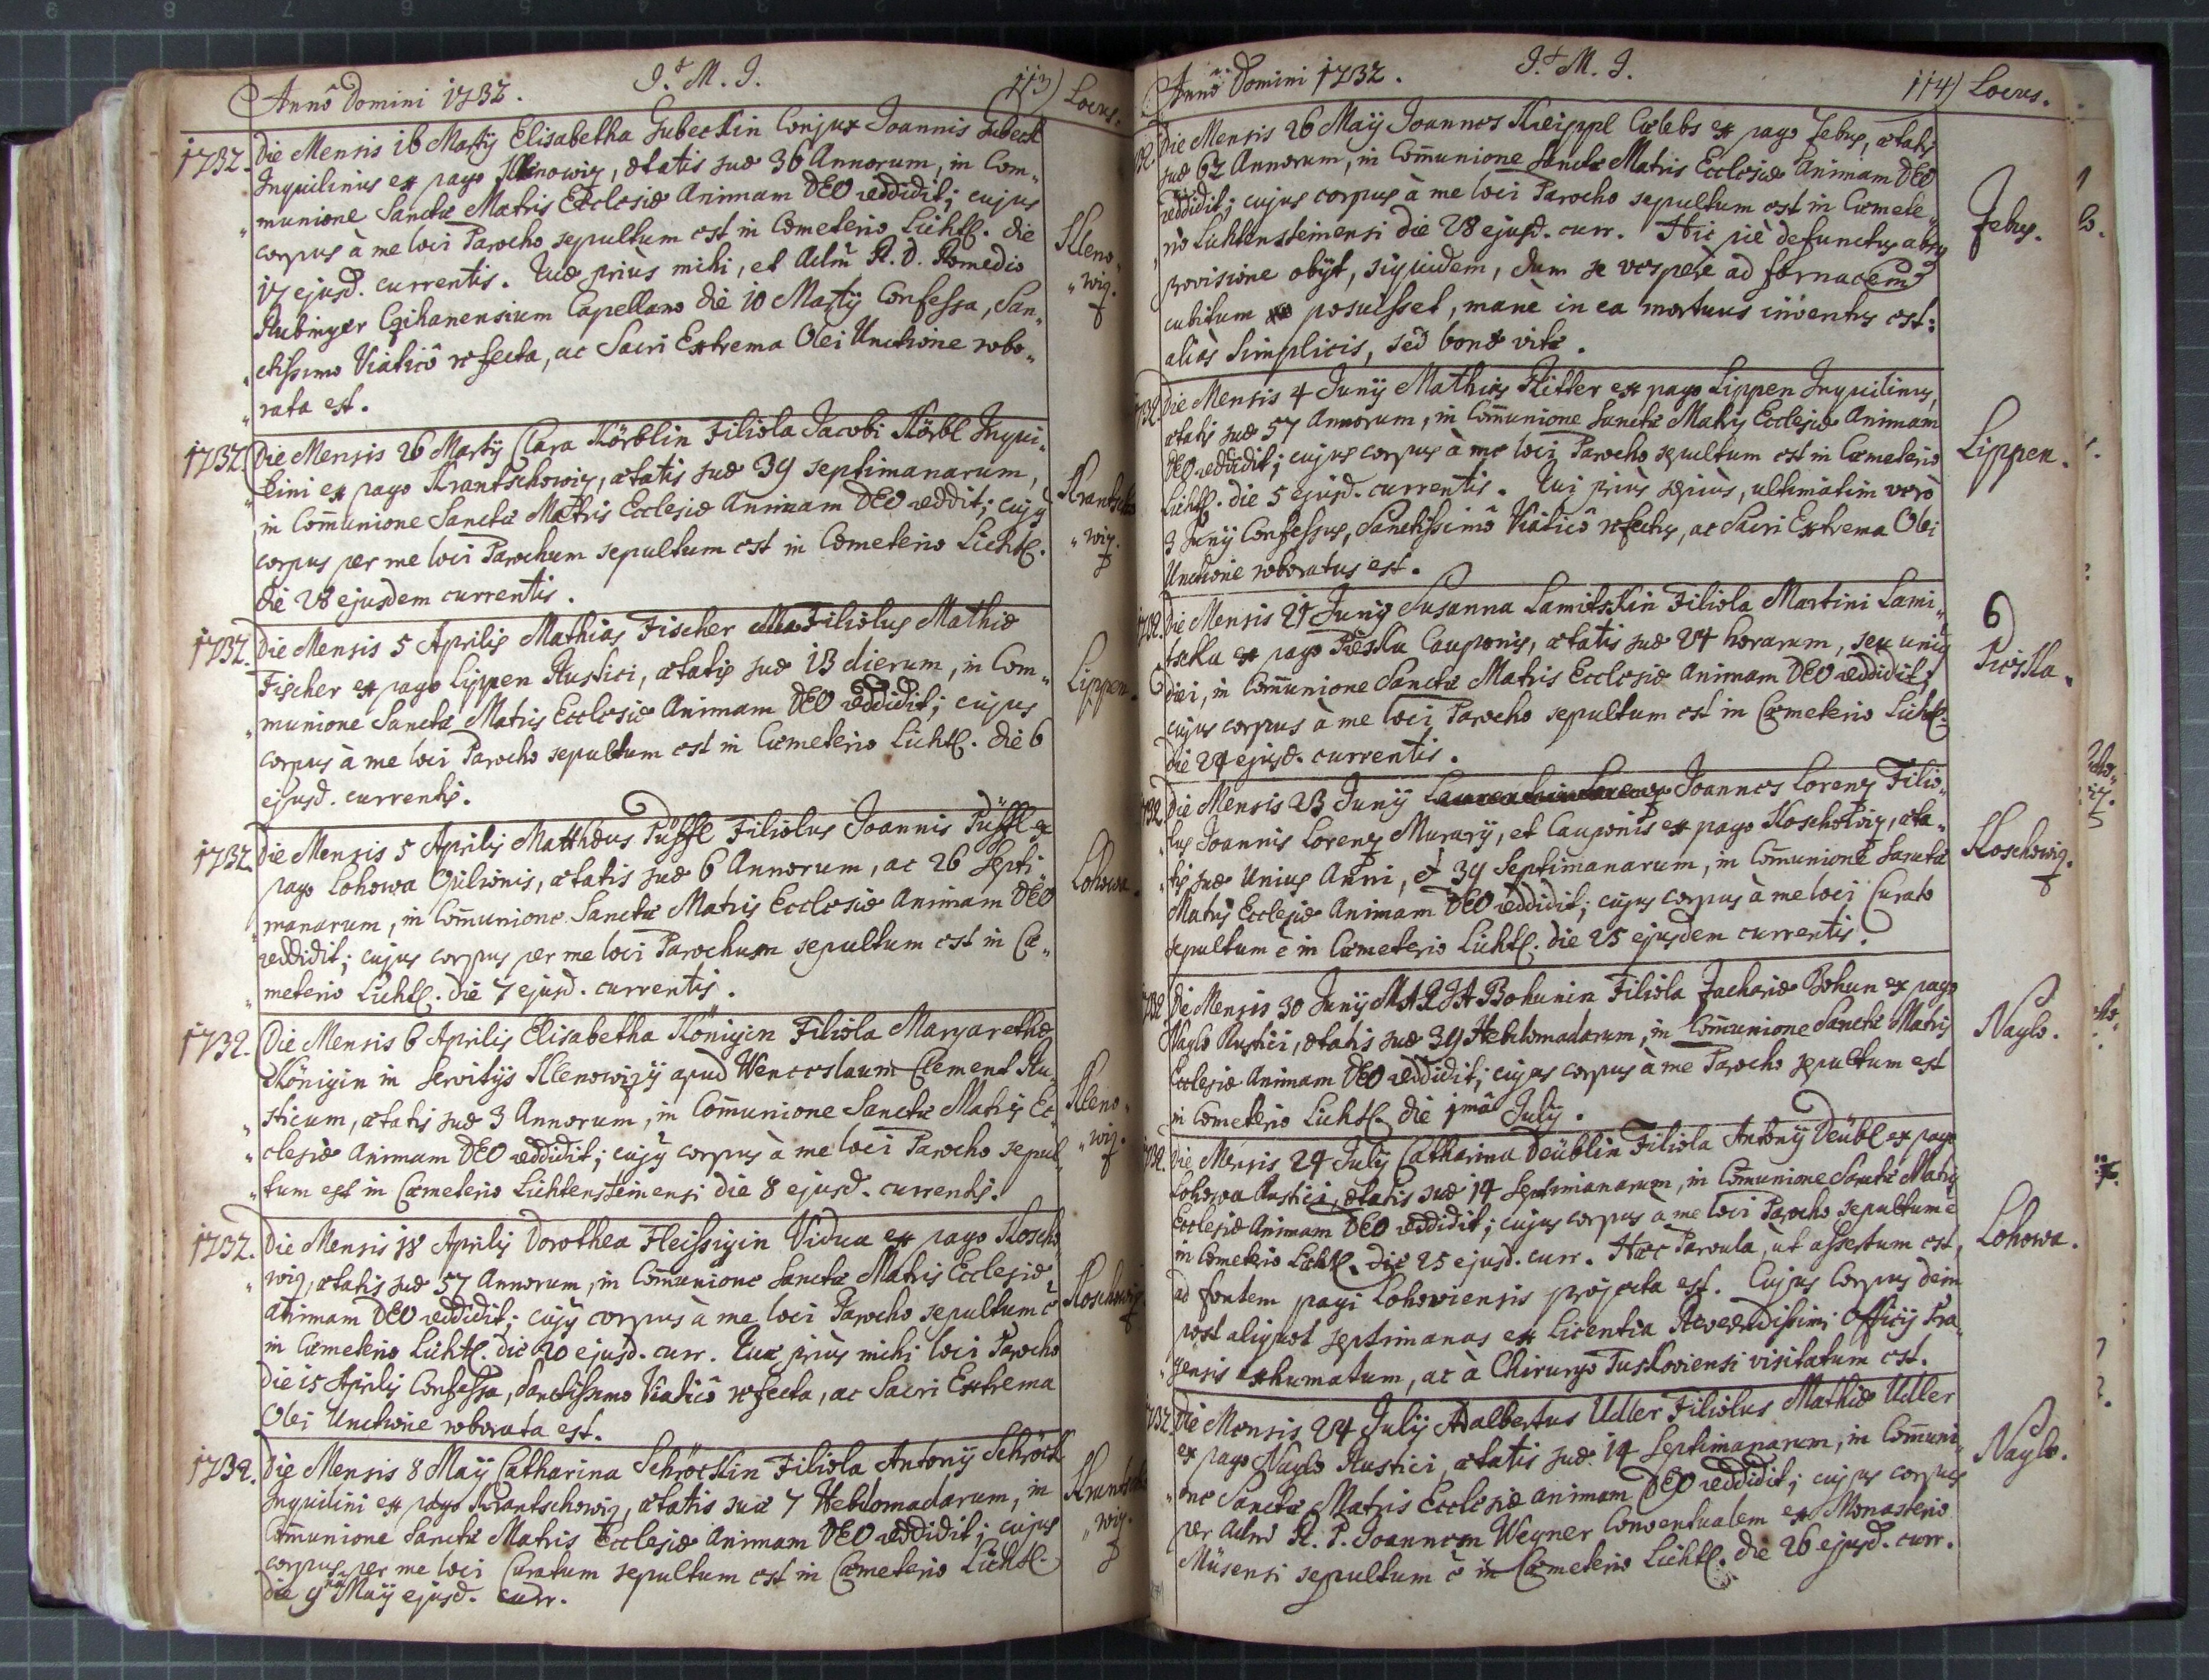 Annô Domini 1732. J. M. J. 113) Locus.
1732. Die Mensis 16 Martij Elisabetha Gubeckin Conjux Joannis Gubeck
Inquilinus ex pago Klenowiz, ætatis suæ 36 Annorum, in Com„
„munione Sanctæ Matris Ecclesiæ Animam DEO reddidit; cujus
corpus à me loci Parocho sepultum est in Cœmeterio Lichts. die
17 ejusd. currentis. Quæ priùs mihi, et Adm R. D. Romedio
Kleno„
„wiz.
Rubinger Czihanensium Capellano die 10 Martij Confessa, San„
„ctissimo Viaticô refecta, ac Sacri Extrema Olei Unctione robo„
„rata est.
1732. Die Mensis 26 Martij Clara Körblin Filiola Jacobi Körbl Inqui„
„lini ex pago Krantschowiz, ætatis suæ 39 septimanarum,
in Communione Sanctæ Matris Ecclesiæ Animam DEO reddit; cujus
corpus per me loci Parochum sepultum est in Cœmeterio Lichts.
die 28 ejusdem currentis.
Krantscho
„wiz.
1732. Die Mensis 5 Aprilis Mathias Fischer Filiolus Mathiæ
Fischer ex pago Lippen Rustici, ætatis suæ 13 dierum, in Com„
„munione Sanctæ Matris Ecclesiæ Animam DEO reddidit; cujus
corpus à me loci Parocho sepultum est in Cœmeterio Lichts. die 6
ejusd. currentis.
Lippen.
1732. Die Mensis 5 Aprilis Matthæus Püffl Filiolus Joannis Püffl ex
pago Lohowa Opilionis, ætatis suæ 6 Annorum, ac 26 Septi„
„manarum, in Communione Sanctæ Matris Ecclesiæ Animam DEO
reddidit; cujus corpus per me loci Parochum sepultum est in Cœ„
„meterio Lichts. die 7 ejusd. currentis.
Lohowa.
1732. Die Mensis 6 Aprilis Elisabetha Königin Filiola Margarethæ
Königin in servitijs Klenowizij apud Wenceslaum Clement Ru„
„sticum, ætatis suæ 3 Annorum, in Communione Sanctæ Matris Ec„
„clesiæ Animam DEO reddidit; cujus corpus à me loci Parocho sepul„
„tum est in Cœmeterio Lichtensteinensi die 8 ejusd. currentis.
Kleno„
„wiz.
1732. Die Mensis 18 Aprilis Dorothea Fleissigin Vidua ex pago Koscho„
„wiz, ætatis suæ 57 Annorum, in Communione Sanctæ Matris Ecclesiæ
animam DEO reddidit; cujus corpus à me loci Parocho sepultum ē
in Cœmeterio Lichts. die 20 ejusd. curr. Quæ priùs mihi loci Parocho
die 15 Aprilis Confessa, Sanctissimo Viaticô refecta, ac Sacri Extrema
Olei Unctione roborata est.
Koschowiz.
1732. Die Mensis 8 Maij Catharina Schröckin Filiola Antonij Schröck
Inquilini ex pago Krantschowiz, ætatis suæ 7 Hebdomadarum, in
Communione Sanctæ Matris Ecclesiæ Animam DEO reddidit; cujus
corpus per me loci Curatum sepultum est in Cœmeterio Lichts.
die 9na Maij ejusd. curr.
Krantscho
„wiz.
Annô Domini 1732. J. M. J. 114) Locus.
Die Mensis 26 Maij Joannes Kreippl Cælebs ex pago Jebus, ætatis
suæ 62 Annorum, in Communione Sanctæ Matris Ecclesiæ Animam DEO
reddidit; cujus corpus à me loci Parocho sepultum est in Cœmete„
„rio Lichtensteinensi die 28 ejusd. curr. Hic piè defunctus absq
provisione obijt, siquidem, dum se vesperè ad fornacem
cubitum posuisset, manè in ea mortuus inventus est:
aliàs simplicis, sed bonæ vitæ.
Jebus.
1732. Die Mensis 4 Junij Mathias Ritter ex pago Lippen Inquilinus,
ætatis suæ 57 Annorum, in Communione Sanctæ Matris Ecclesiæ Animam
DEO reddidit; cujus corpus à me loci Parocho sepultum est in Cœmeterio
Lichts. die 5 ejusd. currentis. Qui priùs sæpiùs, ultimatim verò
3 Junij Confessus, Sanctissimô Viaticô refectus, ac Sacri Extrema Olei
Unctione roboratus est.
Lippen.
1732. Die Mensis 21 Junij Susanna Lamitskin Filiola Martini Lami„
tscka ex pago Pieska Cauponis, ætatis suæ 24 horarum, seu unius
diei, in Communione Sanctæ Matris Ecclesiæ Animam DEO reddidit;
cujus corpus à me loci Parocho sepultum est in Cœmeterio Lichts.
die 24 ejusd. currentis.
6
Pieska.
1732. Die Mensis 23 Junij Joannes Lorenz Filio„
„lus Joannis Lorenz Murarij, et Cauponis ex pago Koschowiz, æta„
„tis suæ Unius Anni, et 39 Septimanarum, in Communione Sanctæ
Matris Ecclesiæ Animam DEO reddidit; cujus corpus à me loci Curato
sepultum ē in Cœmeterio Lichts. die 25 ejusdem currentis.
Koschowiz.
1732. Die Mensis 30 Junij MARIA Bohunin Filiola Zachariæ Bohun ex pago
Naglo Rustici, ætatis suæ 39 Hebdomadarum, in Communione Sanctæ Matris
Ecclesiæ Animam DEO reddidit; cujus corpus à me Parocho sepultum est
in Cœmeterio Lichts. die 1mâ Julij.
Naglo.
1732. Die Mensis 24 Julij Catharina Deüblin Filiola Antonij Deübl ex pago
Lohowa Rustici, ætatis suæ 14 Septimanarum, in Communione Sanctæ Matris
Ecclesiæ Animam DEO reddidit; cujus corpus à me loci Parocho sepultum ē
in Cœmeterio Lichts. die 25 ejusd. curr. Hæc Parvula, ùt assertum est,
ad fontem pagi Lohoviensis projecta est. Cujus Corpus dein
post aliquot septimanas ex Licentia Reverendissimi Officij Pra„
„gensis exhumatum, ac à Chirurgo Tuskoviensi visitatum est.
Lohowa.
1732. Die Mensis 24 Julij Adalbertus Udler Filiolus Mathiæ Udler
ex pago Naglo Rustici, ætatis suæ 14 Septimanarum, in Communi„
„one Sanctæ Matris Ecclesiæ animam DEO reddidit; cujus corpus
per Adm R. P. Joannem Wegner Conventualem ex Monasterio
Müsensi sepultum ē in Cœmeterio Lichts. die 26 ejusd. curr.
Naglo.